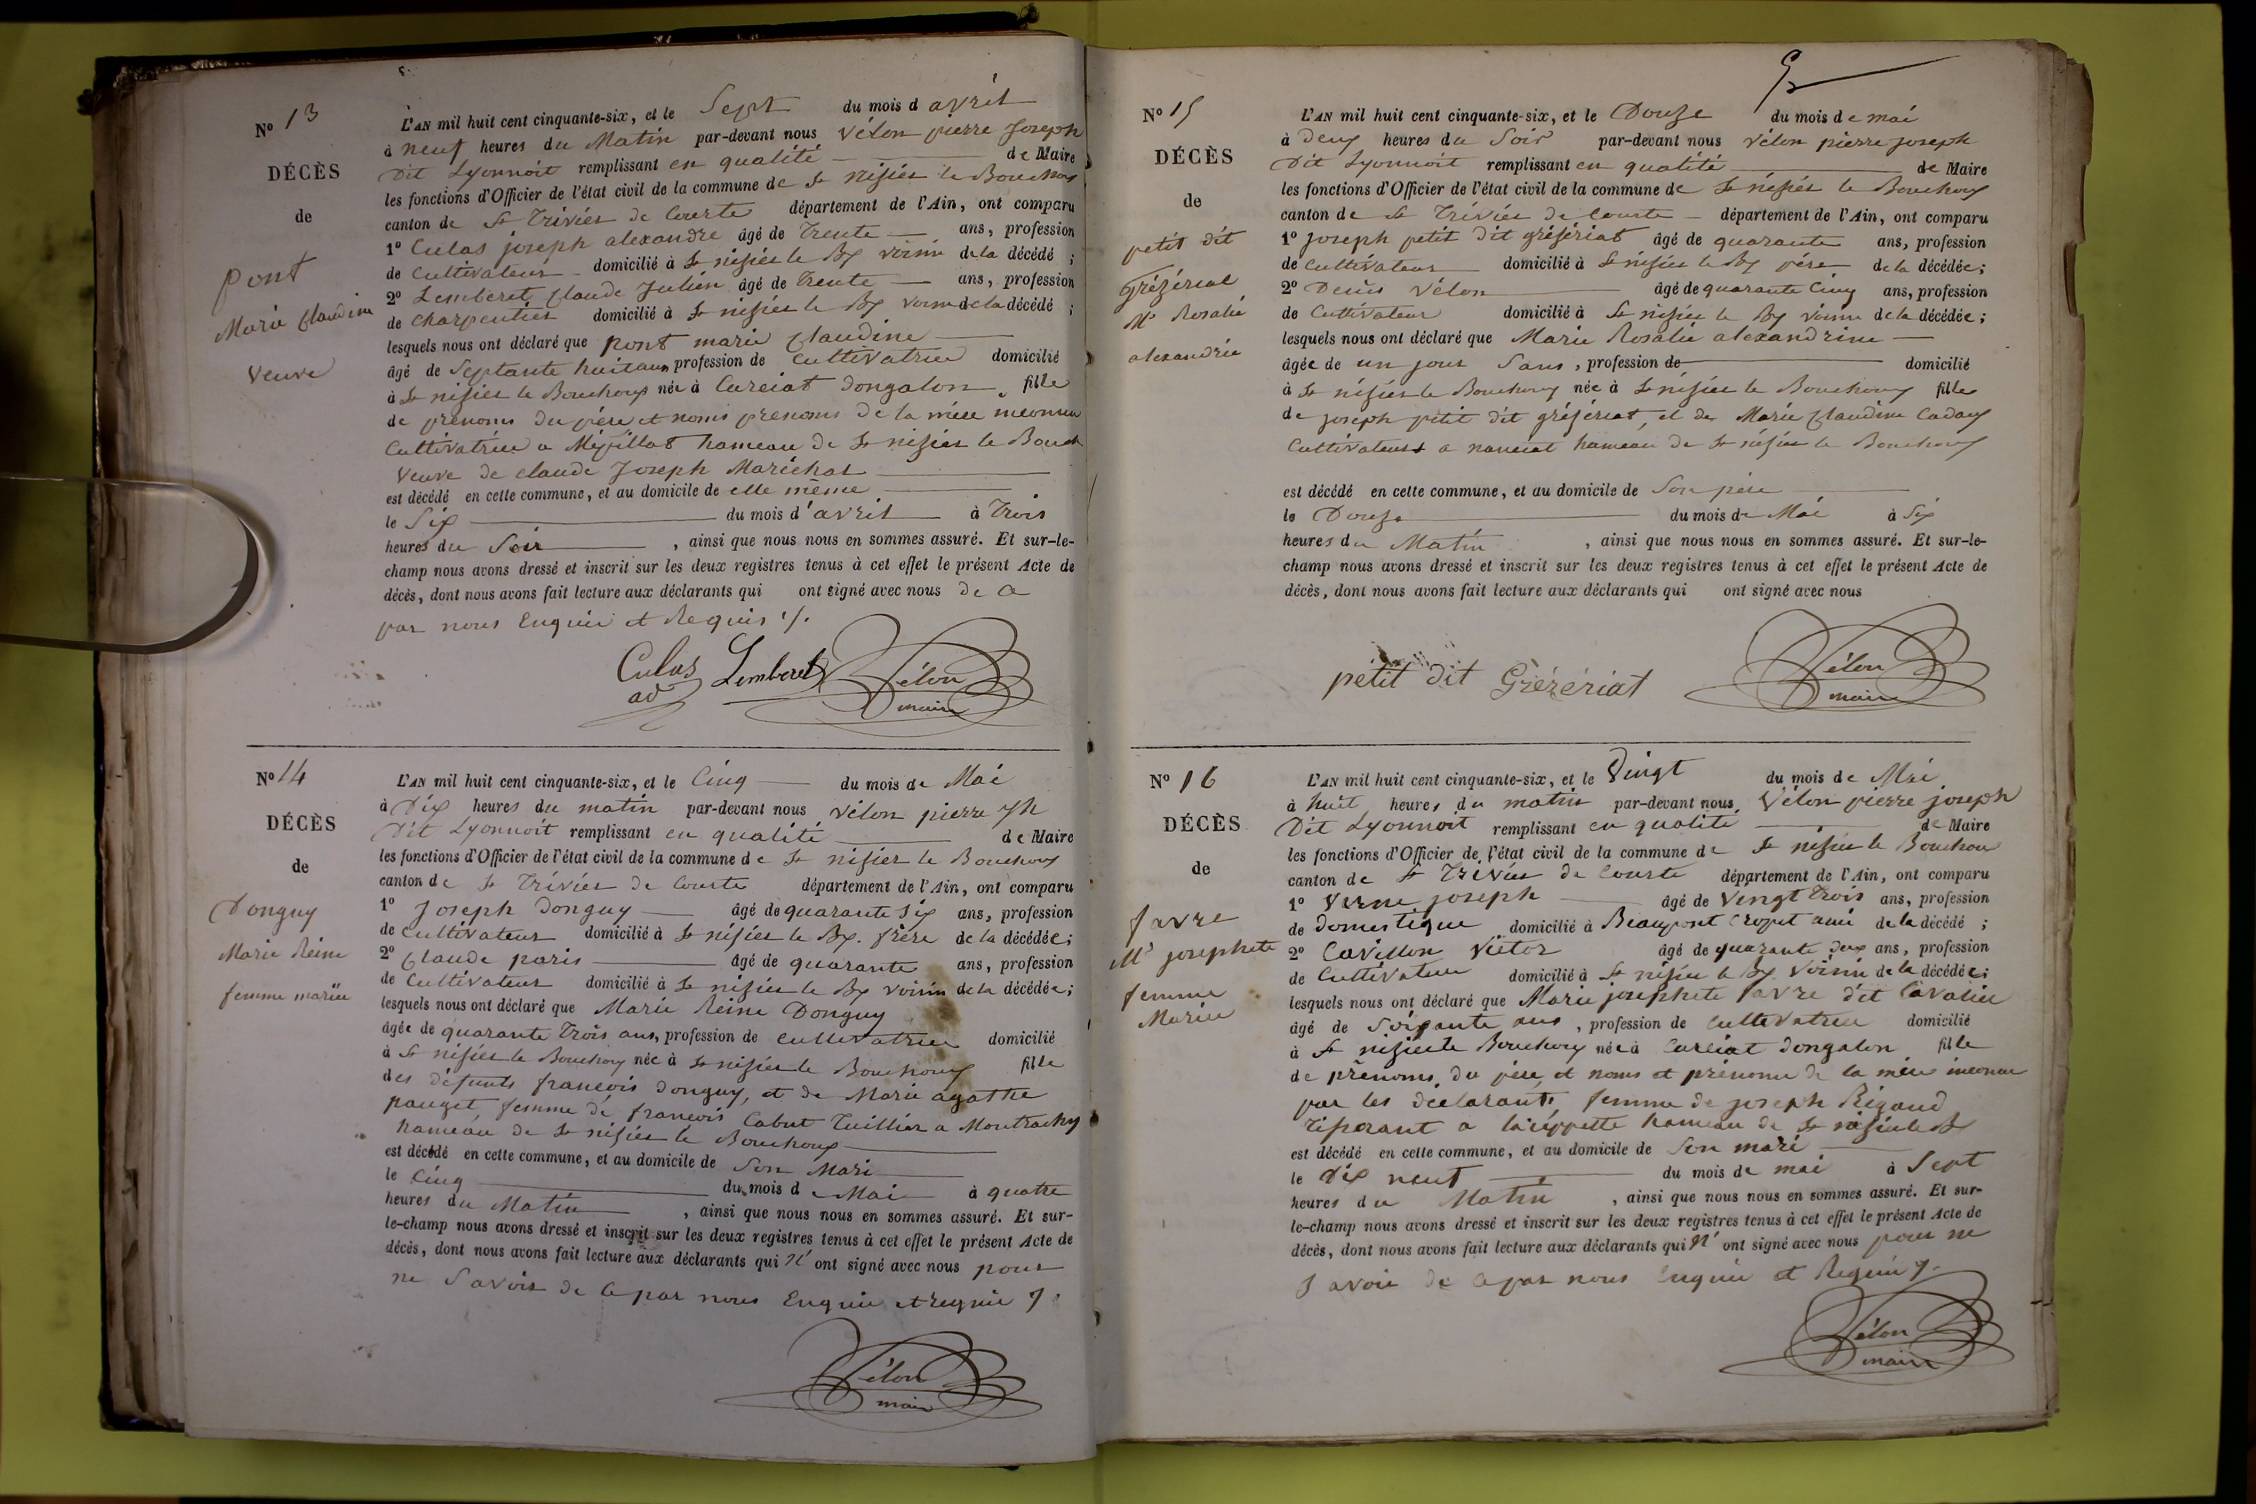 No 13
DÉCÈS
de
pont
Marie Claudine
veuve
L'AN mil huit cent cinquante-six, et le Sept du mois d avril
à neuf heures du Matin par-devant nous Vélon pierre Joseph
Dit Lyonnoit remplissant en qualité de Maire
les fonctions d'Officier de l'état civil de la commune de St nisier le Bouchoux
canton de St Trivier de Courte département de l'Ain, ont comparu
1o Culas joseph alexandre âgé de Trente ans, profession
de Cultivateur domicilié à St nisier le Bx voisin de la décédé ;
2o Lemberet Claude Julien âgé de Trente ans, profession
de charpentier domicilié à St nisier le Bx voisin de la décédé ;
lesquels nous ont déclaré que pont marie Claudine
âgé de Septante huit ans profession de Cultivatrice domicilié
à St nisier le Bouchoux née à Curciat dongalon fille
de prénoms du père et noms prenoms de la mère inconnu
Cultivatrice a Mépillat hameau de St nisier le Bouch
veuve de claude Joseph Maréchal
est décédé en cette commune, et au domicile de elle même
le Six du mois d'avril à Trois
heures du Soir , ainsi que nous nous en sommes assuré. Et sur-le-
champ nous avons dressé et inscrit sur les deux registres tenus à cet effet le présent Acte de
décès, dont nous avons fait lecture aux déclarants qui ont signé avec nous de a
par nous Enquis et Requis ./.
Culas Lemberet Vélon
ad maire
No 14
DÉCÈS
de
Donguy
Marie Reine
femme mariée
L'AN mil huit cent cinquante-six, et le Cinq du mois de Mai
à Dix heures du matin par-devant nous vélon pierre jh
Dit Lyonnoit remplissant en qualité de Maire
les fonctions d'Officier de l'état civil de la commune de St nisier le Bouchoux
canton de St Trivier de Courte département de l'Ain, ont comparu
1o Joseph Donguy âgé de quarante Six ans, profession
de Cultivateur domicilié à St nisier le Bx. frère de la décédée;
2o Claude paris âgé de quarante ans, profession
de Cultivateur domicilié à St nisier le Bx voisin de la décédée;
lesquels nous ont déclaré que Marie Reine Donguy
âgée de quarante Trois ans, profession de cultivatrice domicilié
à St nisier le Bouchoux née à St nisier le Bouchoux fille
des défunts francois donguy, et de Marie agathe
pauget, femme de francois Cabut Tuillier a Montrachy
hameau de St nisier le Bouchoux
est décédé en cette commune, et au domicile de Son Mari
le Cinq du mois de Mai à quatre
heures du Matin , ainsi que nous nous en sommes assuré. Et sur-
le-champ nous avons dressé et inscrit sur les deux registres tenus à cet effet le présent Acte de
décès, dont nous avons fait lecture aux déclarants qui n' ont signé avec nous pour
ne Savoir de ce par nous Enquis et requis ./.
Vélon
maire
No 15
DÉCÈS
de
petit dit
Grézériat
Mie Rosalie
alexandrie
L'AN mil huit cent cinquante-six, et le Douze du mois de mai
à deux heures du Soir par-devant nous Vélon pierre joseph
Dit Lyonnoit remplissant en qualité de Maire
les fonctions d'Officier de l'état civil de la commune de St nisier le Bouchoux
canton de St Trivier de Courte département de l'Ain, ont comparu
1o Joseph petit dit grésériat âgé de quarante ans, profession
de Cultivateur domicilié à St nisier le Bx père de la décédée;
2o Denis Vélon âgé de quarante Cinq ans, profession
de Cultivateur domicilié à St nisier le Bx voisin de la décédée;
lesquels nous ont déclaré que Marie Rosalie alexandrine
âgée de un jour Sans, profession de domicilié
à St nisier le Bouchoux née à St nisier le Bouchoux fille
de joseph petit dit grésériat, et de Marie Claudine Cadoux
Cultivateurs a hameau de St nisier le Bouchoux
est décédé en cette commune, et au domicile de Son père
le Douze du mois de Mai à Six
heures du Matin , ainsi que nous nous en sommes assuré. Et sur-le-
champ nous avons dressé et inscrit sur les deux registres tenus à cet effet le présent Acte de
décès, dont nous avons fait lecture aux déclarants qui ont signé avec nous
petit dit Grézériat Vélon
maire
No 16
DÉCÈS
de
favre
Mie josephete
femme
Mariée
L'AN mil huit cent cinquante-six, et le Vingt du mois de Mai
à huit heures du matin par-devant nous Vélon pierre joseph
Dit Lyonnoit remplissant en qualité de Maire
les fonctions d'Officier de l'état civil de la commune de St nisier le Bouchou
canton de St Trivier de Courte département de l'Ain, ont comparu
1o Verne joseph âgé de Vingt Trois ans, profession
de Domestique domicilié à Beaupont ami de la décédé ;
2o Cavillon Victor âgé de quarante deux ans, profession
de Cultivateur domicilié à St nisier le Bx Voisin de la décédée;
lesquels nous ont déclaré que Marie josephete favre dit Cavalier
âgé de Soixante ans , profession de Cultivatrice domicilié
à St nisier le Bouchoux née à Curciat dongalon fille
de prénoms, du père, et noms et prénoms de la mère inconnu
par les declarants femme de joseph Rigaud
Tisserant a hameau de St nisier le Bx
est décédé en cette commune, et au domicile de Son mari
le Dix neuf du mois de mai à Sept
heures du Matin , ainsi que nous nous en sommes assuré. Et sur-
le-champ nous avons dressé et inscrit sur les deux registres tenus à cet effet le présent Acte de
décès, dont nous avons fait lecture aux déclarants qui n' ont signé avec nous pour ne
Savoir de ce par nous Enquis et Requis ./.
Vélon
maire